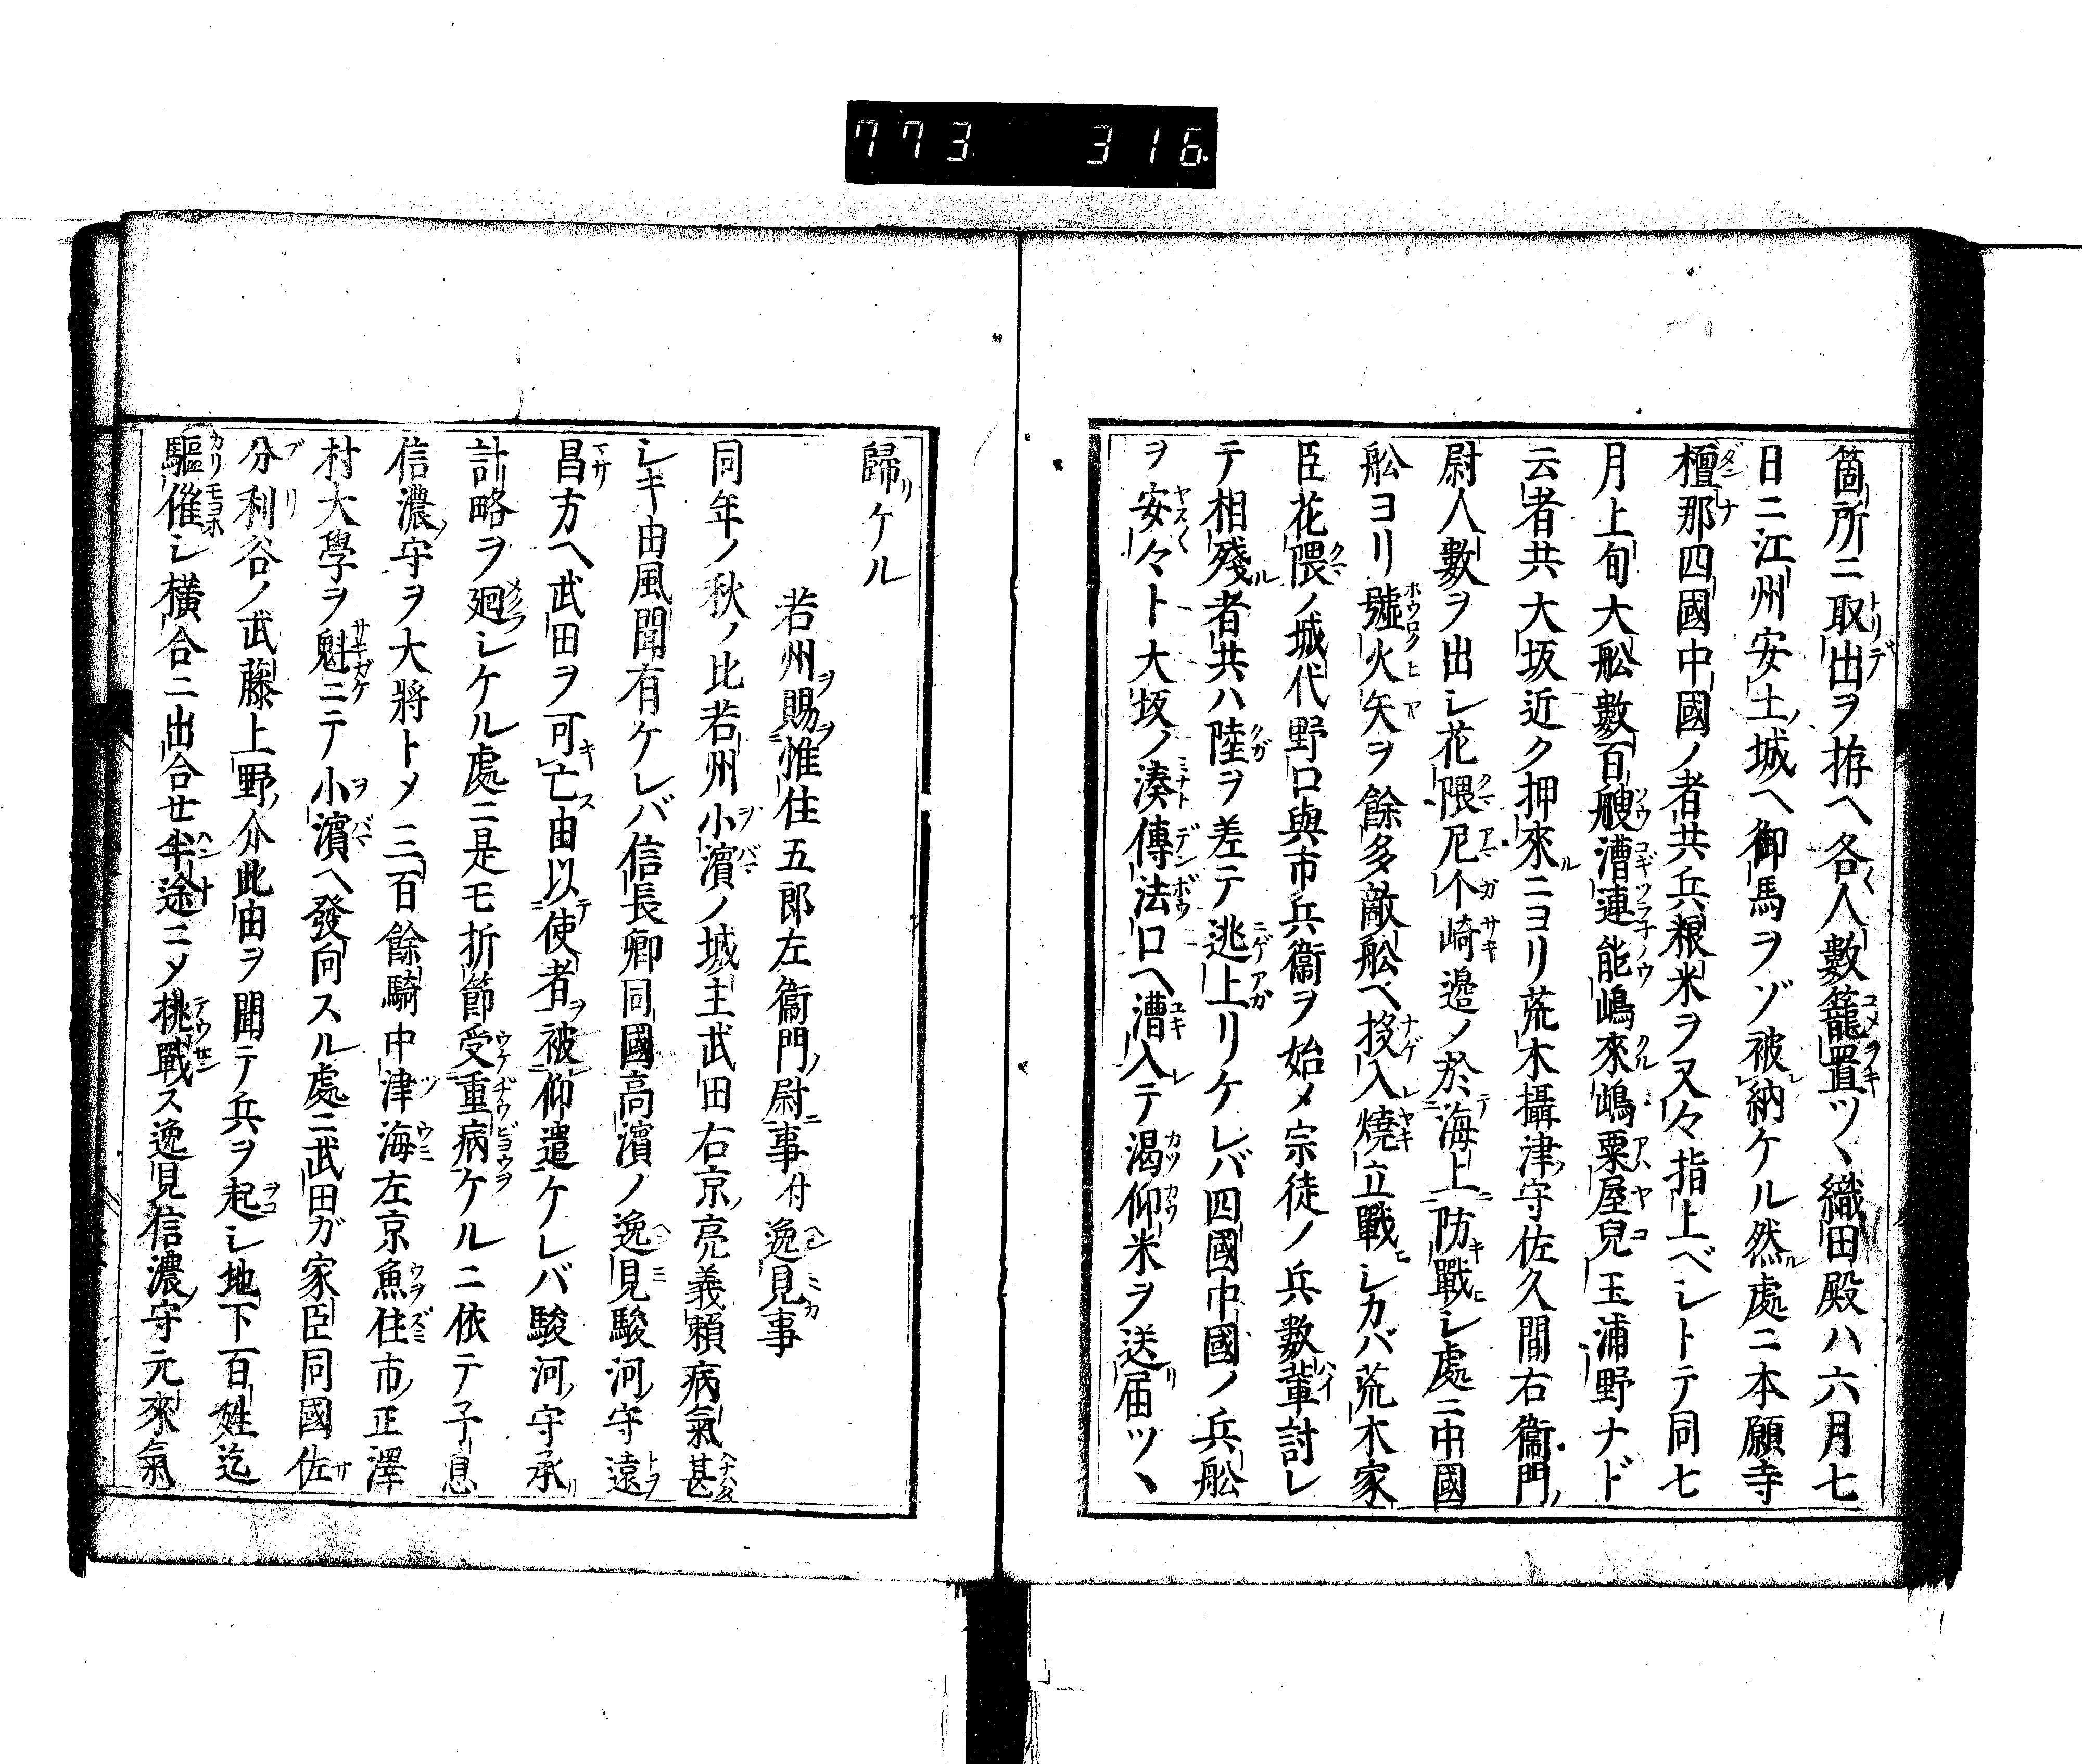 773 316
箇所ニ取出ヲ拵ヘ各人數籠置ツヽ織田殿ハ六月七
日ニ江州安土ノ城ヘ御馬ヲゾ被納ケル然處ニ本願寺
檀那四國中國ノ者共兵粮米ヲ又々指上ベシトテ同七
月上旬大舩數百艘漕連能嶋來嶋粟屋兒玉浦野ナド
云者共大坂近ク押來ルニヨリ荒木攝津ノ守佐久間右衞門ノ
尉人數ヲ出シ花隈尼个崎邉ノ於海上防戰シ處ニ中國
舩ヨリ墟火矢ヲ餘多敵舩ヘ投入燒立戰シカバ荒木家
臣花隈ノ城代野口與市兵衞ヲ始メ宗徒ノ兵數輩討レ
テ相殘者共ハ陸ヲ差テ逃上リケレバ四國中國ノ兵舩
ヲ安々ト大坂ノ湊傳法口ヘ漕入テ渇仰米ヲ送届ツヽ
歸ケル
若州賜惟住五郎左衞門ノ尉事付逸見事
同年ノ秋ノ比若州小濵ノ城主武田右京ノ亮義賴病氣甚
シキ由風聞有ケレバ信長卿同國高濵ノ逸見駿河ノ守遠
昌方ヘ武田ヲ可亡由以使者被仰遣ケレバ駿河ノ守承
計略ヲ廻シケル處ニ是モ折節受重病ケルニ依テ子息
信濃ノ守ヲ大將トメ三百餘騎中津海左京魚住市ノ正澤
村大學ヲ魁ニテ小濵ヘ發向スル處ニ武田ガ家臣同國佐
分利谷ノ武藤上野ノ介此由ヲ聞テ兵ヲ起シ地下百姓迄
驅催シ横合ニ出合セ半途ニメ挑戰ス逸見信濃ノ守元來氣